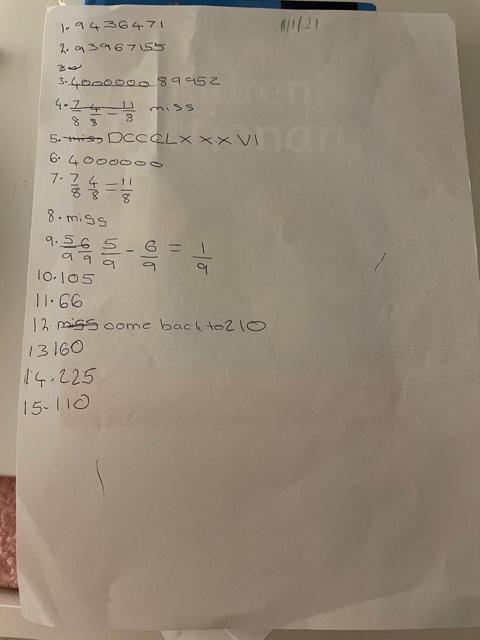 1. 9436471
11/1/21
2. 93967155
3. 4000000 89952
4. 7/8 4/8 = 11/8 miss
5. miss DCCCLXXXVI
6. 4000000
7. 7/8 4/8 = 11/8
8. miss
9. 5/9 6/9 5/9 - 6/9 = 1/9
10. 105
11. 66
12. miss come back to 210
13 160
14. 225
15- 110